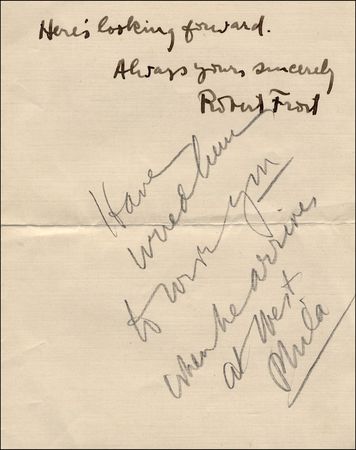 Here's looking forward.
Always yours sincerely
Robert Frost
Have
wired him
to wire you
when he arrives
at West
Phila